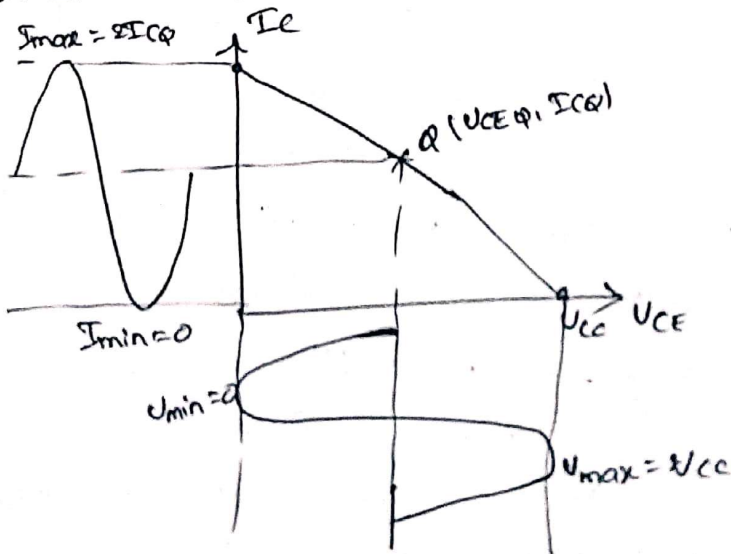 Imax = 2ICQ
IC
Q (VCEQ, ICQ)
Imin = 0
VCC
VCE
Vmin = 0
Vmax = 2VCC